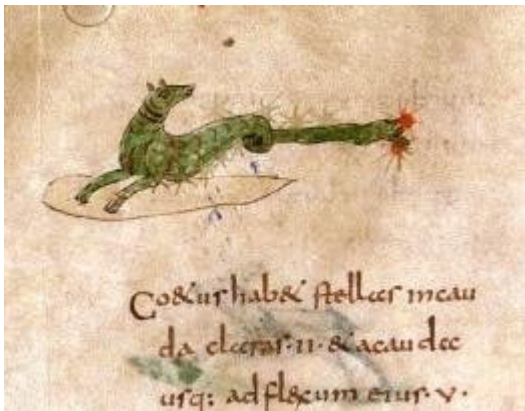 Co&us hab& stellas incau
da claras·II·& acauda
usq: adflexum eius·V·